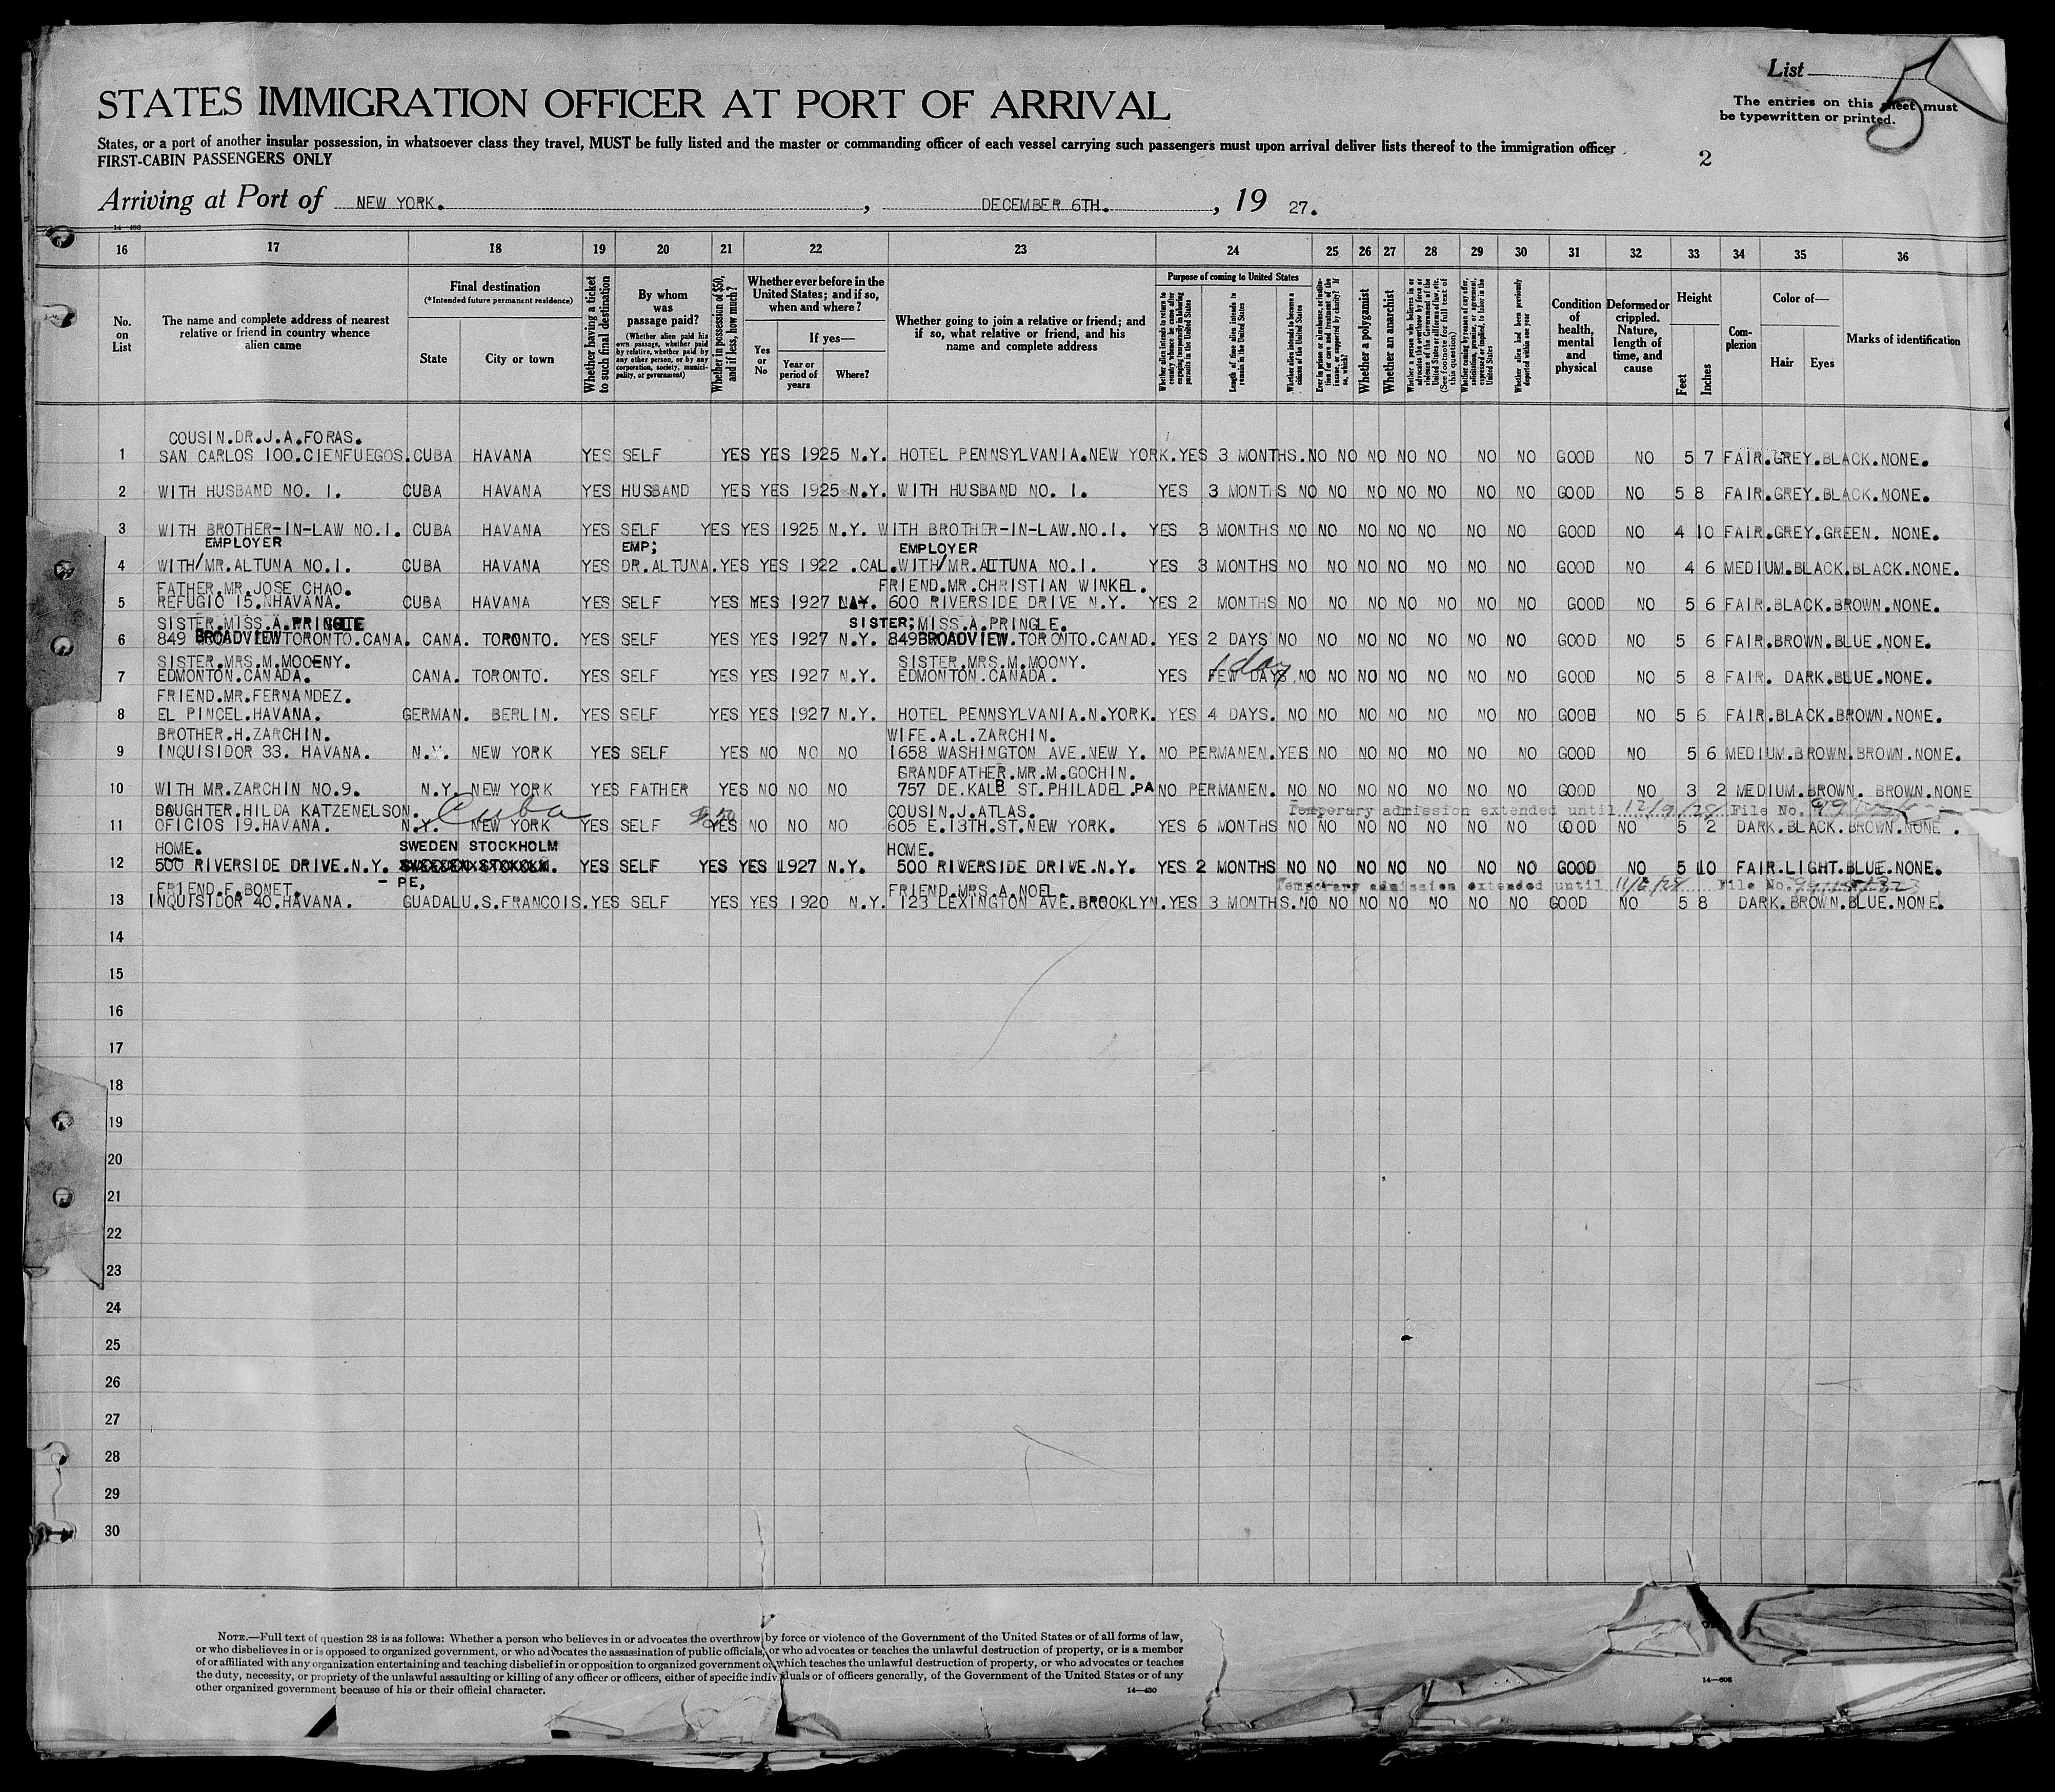 List
5
STATES IMMIGRATION OFFICER AT PORT OF ARRIVAL
The entries on this sheet must
be typewritten or printed.
States, or a port of another insular possession, in whatsoever class they travel, MUST be fully listed and the master or commanding officer of each vessel carrying such passengers must upon arrival deliver lists thereof to the immigration officer
FIRST-CABIN PASSENGERS ONLY
2
Arriving at Port of NEW YORK. , DECEMBER 6TH. , 19 27.
14-430
16 17 18 19 20 21 22 23 24 25 26 27 28 29 30 31 32 33 34 35 36
No. on List
The name and complete address of nearest relative or friend in country whence alien came
Final destination
(*Intended future permanent residence)
State
City or town
Whether having a ticket to such final destination
By whom was passage paid?
(Whether alien paid his own passage, whether paid by relative, whether paid by any other person, or by any corporation, society, municipality, or government)
Whether in possession of $50, and if less, how much?
Whether ever before in the United States; and if so, when and where?
Yes or No
If yes—
Year or period of years
Where?
Whether going to join a relative or friend; and if so, what relative or friend, and his name and complete address
Purpose of coming to United States
Whether alien intends to return to country whence he came after engaging temporarily in laboring pursuits in the United States
Length of time alien intends to remain in the United States
Whether alien intends to become a citizen of the United States
Ever in prison or almshouse, or institution for care and treatment of the insane, or supported by charity? If so, which?
Whether a polygamist
Whether an anarchist
Whether a person who believes in or advocates the overthrow by force or violence of the Government of the United States or all forms of law, etc. (See footnote for full text of this question)
Whether coming by reason of any offer, solicitation, promise, or agreement, expressed or implied, to labor in the United States
Whether alien had been previously deported within one year
Condition of health, mental and physical
Deformed or crippled. Nature, length of time, and cause
Height
Feet
Inches
Complexion
Color of—
Hair
Eyes
Marks of identification
COUSIN.DR.J.A.FORAS.
1 SAN CARLOS 100.CIENFUEGOS.CUBA HAVANA YES SELF YES YES 1925 N.Y. HOTEL PENNSYLVANIA.NEW YORK.YES 3 MONTHS.NO NO NO NO NO NO NO GOOD NO 5 7 FAIR.GREY.BLACK.NONE.
2 WITH HUSBAND NO. 1. CUBA HAVANA YES HUSBAND YES YES 1925 N.Y. WITH HUSBAND NO. 1. YES 3 MONTHS NO NO NO NO NO NO NO GOOD NO 5 8 FAIR.GREY.BLACK.NONE.
3 WITH BROTHER-IN-LAW NO.1. CUBA HAVANA YES SELF YES YES 1925 N.Y. WITH BROTHER-IN-LAW.NO.1. YES 3 MONTHS NO NO NO NO NO NO NO GOOD NO 4 10 FAIR.GREY.GREEN. NONE.
EMPLOYER EMP; EMPLOYER
4 WITH/MR.ALTUNA NO.1. CUBA HAVANA YES DR.ALTUNA.YES YES 1922 .CAL.WITH/MR.ALTUNA NO.1. YES 3 MONTHS NO NO NO NO NO NO NO GOOD NO 4 6 MEDIUM.BLACK.BLACK.NONE.
FATHER.MR.JOSE CHAO. FRIEND.MR.CHRISTIAN WINKEL.
5 REFUGIO 15.NHAVANA. CUBA HAVANA YES SELF YES YES 1927 600 RIVERSIDE DRIVE N.Y. YES 2 MONTHS NO NO NO NO NO NO NO GOOD NO 5 6 FAIR.BLACK.BROWN.NONE.
SISTER.MISS.A.PRINGLE SISTER;MISS.A.PRINGLE.
6 849 BROADVIEW TORONTO.CANA. CANA. TORONTO. YES SELF YES YES 1927 N.Y. 849BROADVIEW.TORONTO.CANAD. YES 2 DAYS NO NO NO NO NO NO NO GOOD NO 5 6 FAIR.BROWN.BLUE.NONE.
SISTER.MRS.M.MOOENY. SISTER.MRS.M.MOONY. 1 day
7 EDMONTON.CANADA. CANA. TORONTO. YES SELF YES YES 1927 N.Y. EDMONTON.CANADA. YES FEW DAYS.NO NO NO NO NO NO NO GOOD NO 5 8 FAIR. DARK.BLUE.NONE.
FRIEND.MR.FERNANDEZ.
8 EL PINCEL.HAVANA. GERMAN. BERLIN. YES SELF YES YES 1927 N.Y. HOTEL PENNSYLVANIA.N.YORK. YES 4 DAYS. NO NO NO NO NO NO NO GOOD NO 5 6 FAIR.BLACK.BROWN.NONE.
BROTHER.H.ZARCHIN. WIFE.A.L.ZARCHIN.
9 INQUISIDOR 33. HAVANA. N.Y. NEW YORK YES SELF YES NO NO NO 1658 WASHINGTON AVE.NEW Y. NO PERMANEN.YES NO NO NO NO NO NO GOOD NO 5 6 MEDIUM.BROWN.BROWN.NONE.
GRANDFATHER.MR.M.GOCHIN.
10 WITH MR.ZARCHIN NO.9. N.Y. NEW YORK YES FATHER YES NO NO NO 757 DE.KALB ST.PHILADEL.PA NO PERMANEN. NO NO NO NO NO NO NO GOOD NO 3 2 MEDIUM.BROWN. BROWN.NONE
DAUGHTER.HILDA KATZENELSON. Cuba COUSIN.J.ATLAS. Temporary admission extended until 12/9/28 File No.
11 OFICIOS 19.HAVANA. N.Y. NEW YORK YES SELF YES NO NO NO 605 E.13TH.ST.NEW YORK. YES 6 MONTHS NO NO NO NO NO NO NO GOOD NO 5 2 DARK.BLACK.BROWN.NONE.
HOME. SWEDEN STOCKHOLM HOME.
12 500 RIVERSIDE DRIVE.N.Y. YES SELF YES YES 1927 N.Y. 500 RIVERSIDE DRIVE.N.Y. YES 2 MONTHS NO NO NO NO NO NO NO GOOD NO 5 10 FAIR.LIGHT.BLUE.NONE.
FRIEND.F.BONET. - PE, FRIEND.MRS.A.NOEL. Temporary admission extended until 11/6/28 File No.
13 INQUISIDOR 40.HAVANA. GUADALU.S.FRANCOIS.YES SELF YES YES 1920 N.Y. 123 LEXINGTON AVE.BROOKLYN.YES 3 MONTHS.NO NO NO NO NO NO NO GOOD NO 5 8 DARK.BROWN.BLUE.NONE.
14
15
16
17
18
19
20
21
22
23
24
25
26
27
28
29
30
NOTE.—Full text of question 28 is as follows: Whether a person who believes in or advocates the overthrow by force or violence of the Government of the United States or of all forms of law,
or who disbelieves in or is opposed to organized government, or who advocates the assassination of public officials, or who advocates or teaches the unlawful destruction of property, or is a member
of or affiliated with any organization entertaining and teaching disbelief in or opposition to organized government or which teaches the unlawful destruction of property, or who advocates or teaches
the duty, necessity, or propriety of the unlawful assaulting or killing of any officer or officers, either of specific individuals or of officers generally, of the Government of the United States or of any
other organized government because of his or their official character.
14-430
14-606